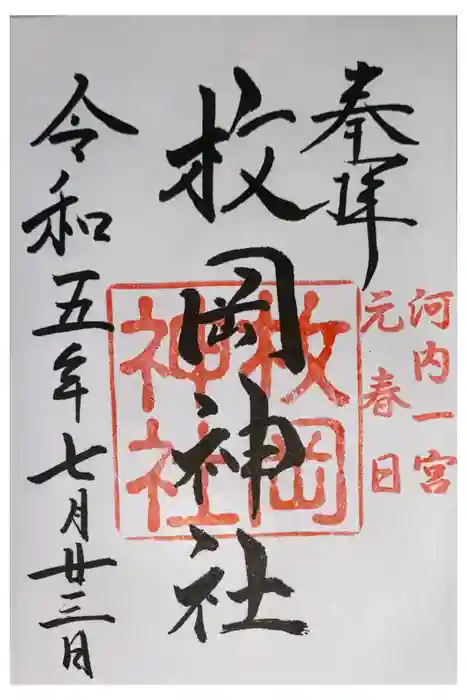 奉拝
河内一宮
元春日
枚岡神社
枚岡
神社
令和五年七月廿三日